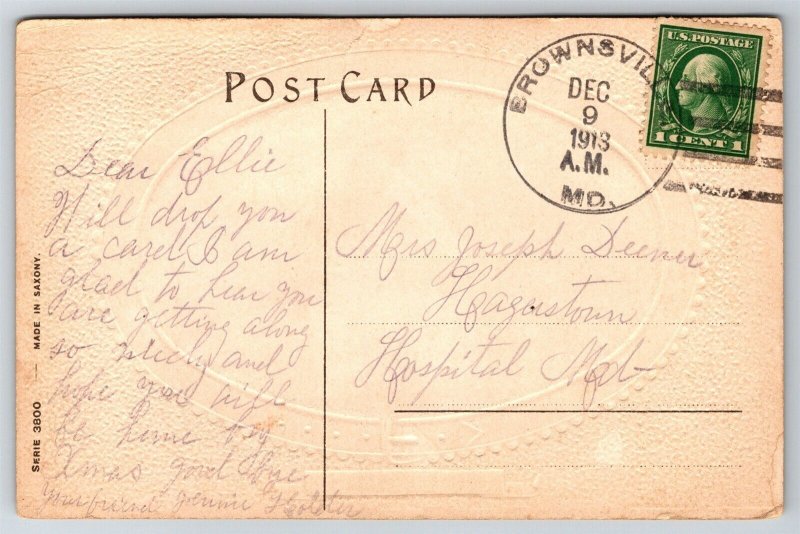 POST CARD
BROWNSVILL
DEC
9
1913
A.M.
MD.
U.S. POSTAGE
1 CENT 1
Dear Ellie
Will drop you
a card I am
glad to hear you
are getting along
so nicely and
hope you will
be home by
Xmas good bye
your friend Jennie
Mrs Joseph Deener
Hagerstown
Hospital Md
SERIE 3800 — MADE IN SAXONY.